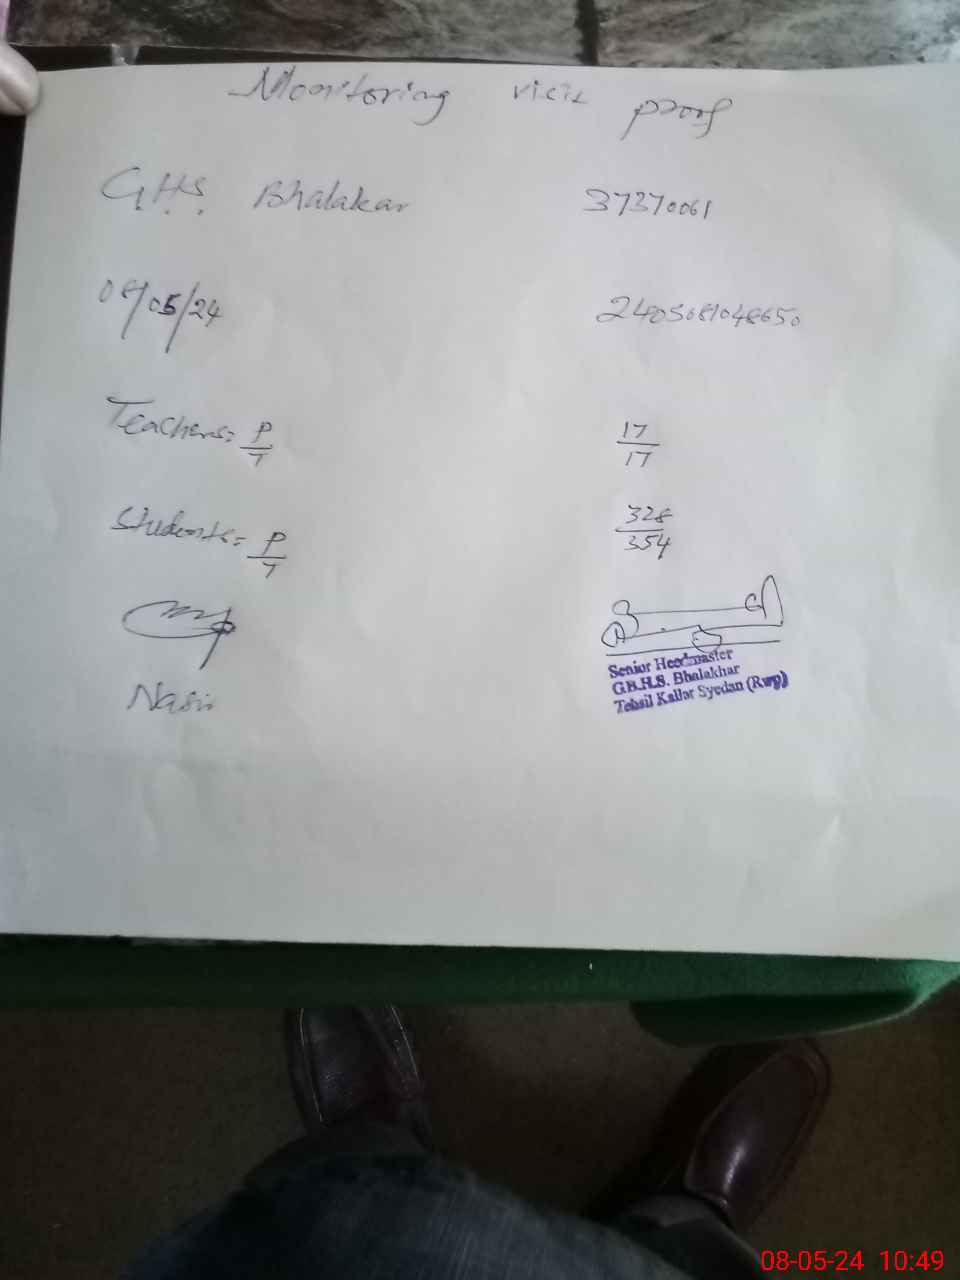 Monitoring visit proof
G.H.S. Bhalakar 37370061
08/05/24 2405081048650
Teachers= P/T 17/17
Students= P/T 328/354
Senior Headmaster
G.B.H.S. Bhalakhar
Tehsil Kallar Syedan (Rwp)
Nasir
08-05-24 10:49